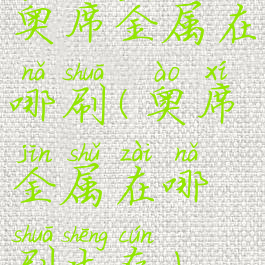 奥席金属在
nǎ shuā ào xí
哪刷(奥席
jīn shǔ zài nǎ
金属在哪
shuā shēng cún
刷生存)